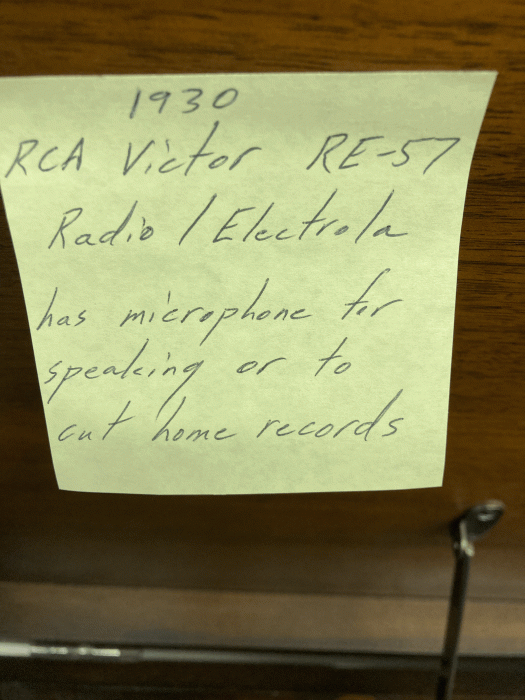 1930
RCA Victor RE-57
Radio / Electrola
has microphone for
speaking or to
cut home records